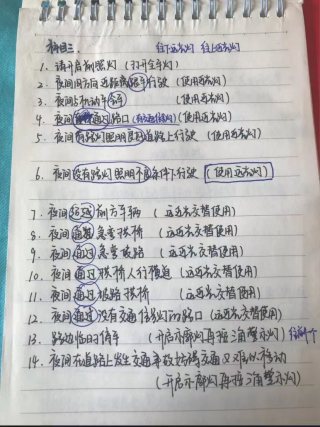 科目三 往下近光灯 往上远光灯
1. 请开启前照灯 (打开全灯)
2. 夜间同方向近距离跟车行驶 (使用近光灯)
3. 夜间与机动车会车 (使用近光灯)
4. 夜间通过路口 (有交通信号灯) (使用近光灯)
5. 夜间有路灯照明良好道路上行驶 (使用近光灯)
6. 夜间没有路灯照明不良条件下行驶 (使用远光灯)
7. 夜间超越前方车辆 (远近光交替使用)
8. 夜间通过急弯拱桥 (远近光交替使用)
9. 夜间通过急弯坡路 (远近光交替使用)
10. 夜间通过拱桥人行横道 (远近光交替使用)
11. 夜间通过坡路拱桥 (远近光交替使用)
12. 夜间通过没有交通信号灯的路口 (远近光交替使用)
13. 路边临时停车 (开启示廓灯再按三角警示灯)
14. 夜间在道路上发生交通事故妨碍交通又难以移动
(开启示廓灯再按三角警示灯)